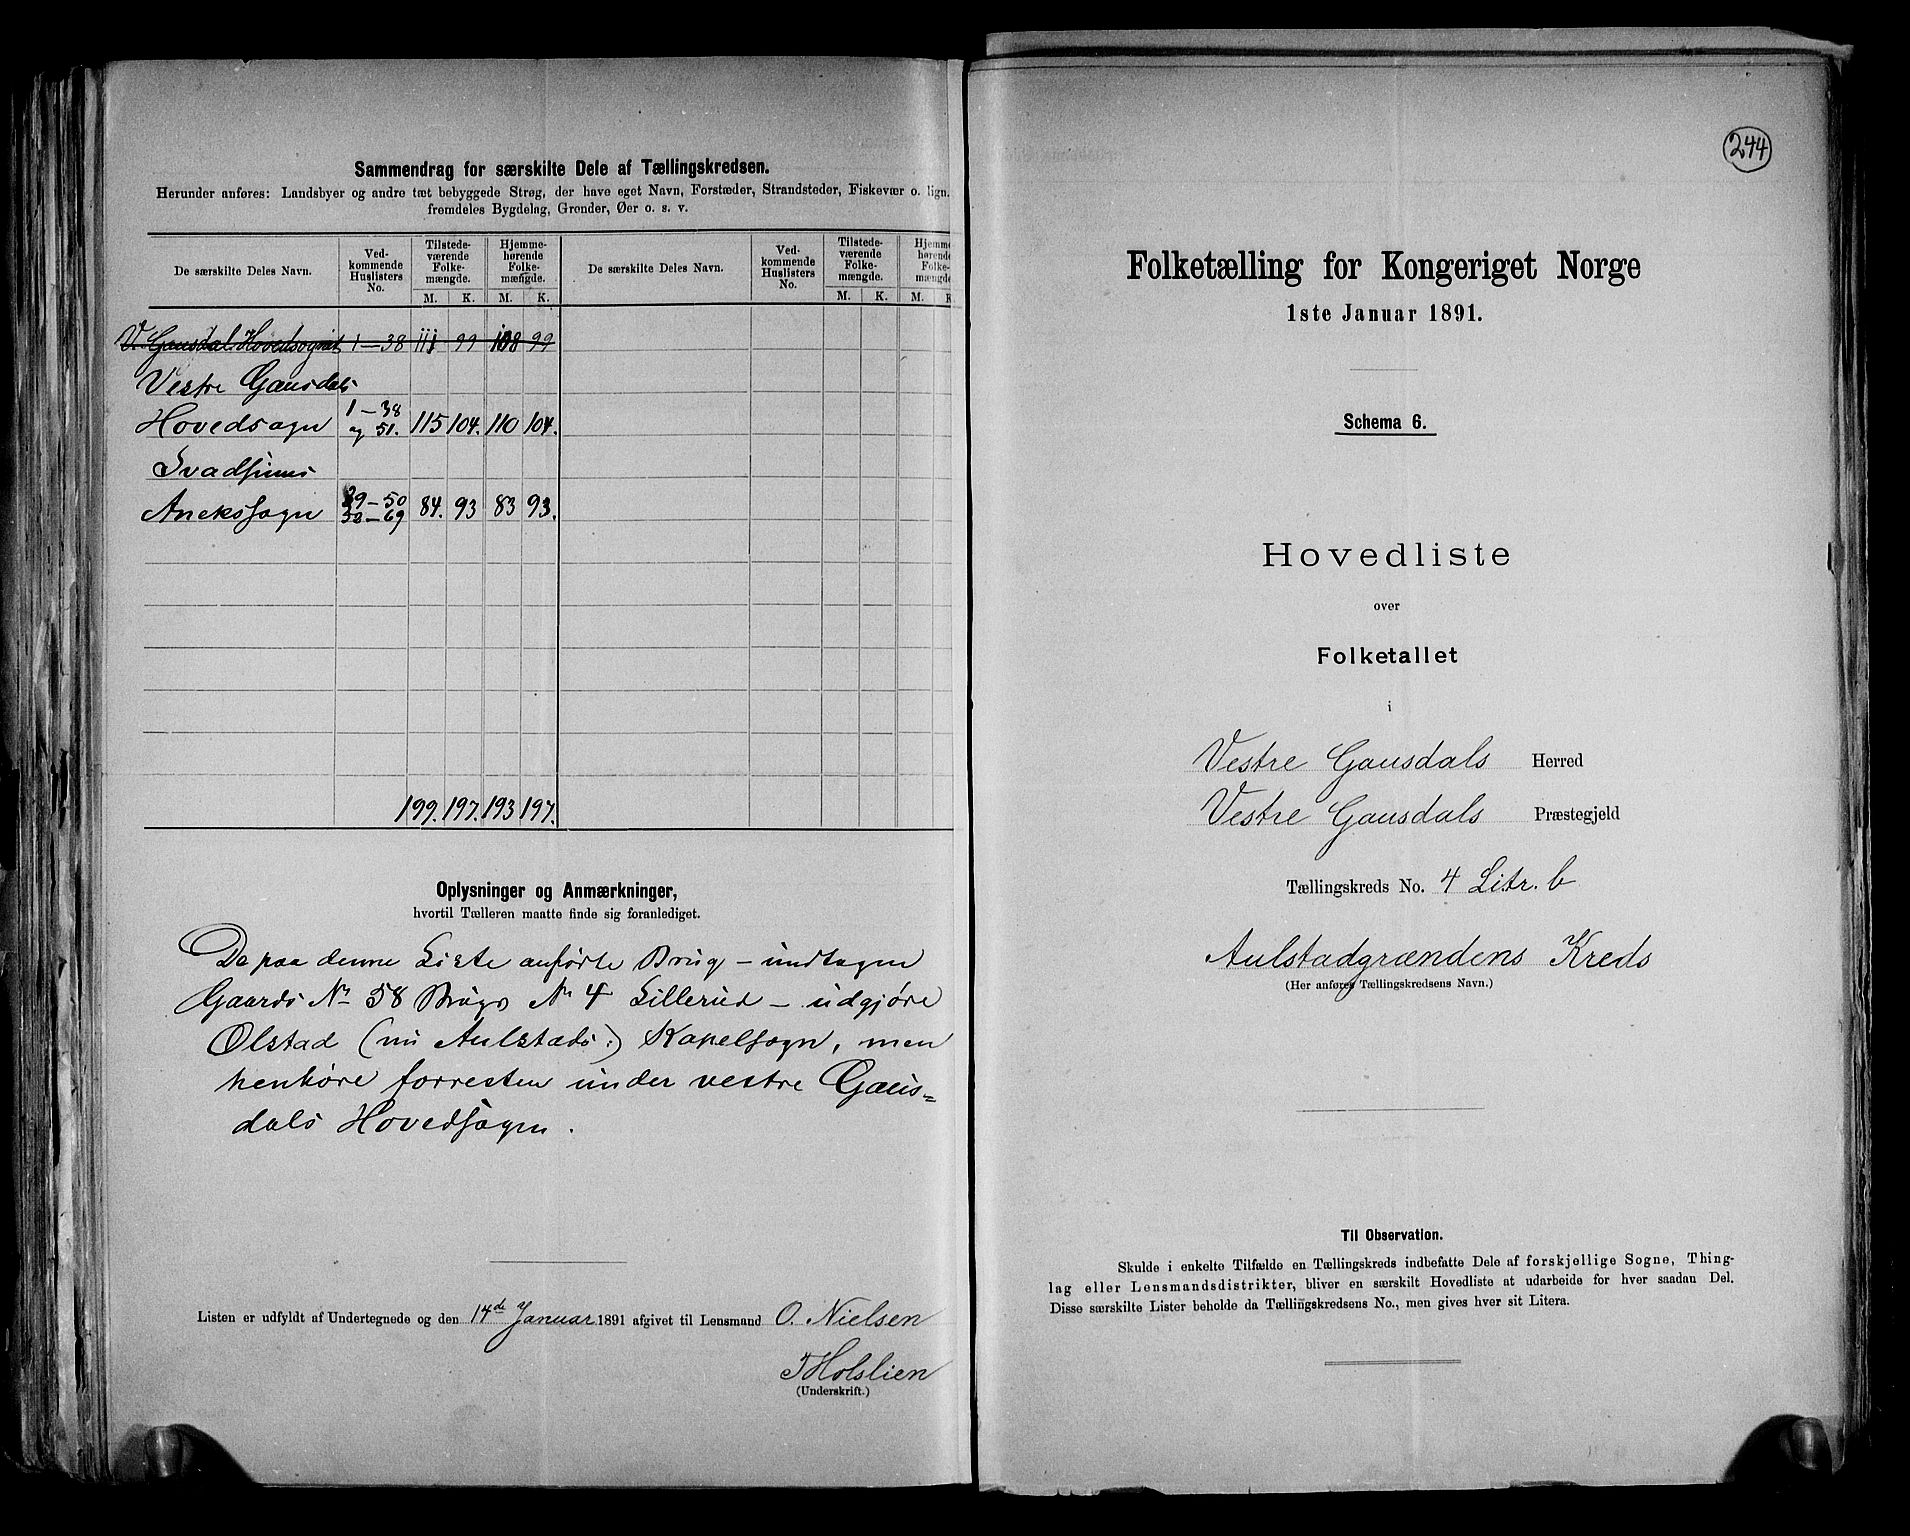 Sammendrag for særskilte Dele af Tællingskredsen.
Herunder anføres: Landsbyer og andre tæt bebyggede Strøg, der have eget Navn, Forstæder, Strandsteder, Fiskevær o. lign.
fremdeles Bygdelag, Grender, Øer o. s. v.
De særskilte Deles Navn. Ved-kommende Huslisters No. Tilstede-værende Folke-mængde. Hjemme-hørende Folke-mængde. De særskilte Deles Navn. Ved-kommende Huslisters No. Tilstede-værende Folke-mængde. Hjemm hørende Folke-mængde
M. K. M. K. M. K. M. K
V. Gausdal Hovedsogn 1-38 111 99 108 99
Vestre Gausdals
Hovedsogn 1-38 og 51. 115 104. 110 104.
Svadsums
Anekssogn 39-50 52-69 84. 93 83 93.
199. 197. 193 197.
Oplysninger og Anmærkninger,
hvortil Tælleren maatte finde sig foranlediget.
De paa denne Liste anførte Brug - undtagen
Gaards No 58 Brugs No 4 Lillerud - udgjøre
Ølstad (nu Aulstads:) Kapelsogn, men
henhøre forresten under vestre Gaus=
dals Hovedsogn.
Listen er udfyldt af Undertegnede og den 14de Januar 1891 afgivet til Lensmand O. Nielsen
THolslien
(Underskrift.)
244
Folketælling for Kongeriget Norge
1ste Januar 1891.
Schema 6.
Hovedliste
over
Folketallet
i
Vestre Gausdals Herred
Vestre Gausdals Præstegjeld
Tællingskreds No. 4 Litr. b
Aulstadgrændens Kreds
(Her anføres Tællingskredsens Navn.)
Til Observation.
Skulde i enkelte Tilfælde en Tællingskreds indbefatte Dele af forskjellige Sogne, Thing-
lag eller Lensmandsdistrikter, bliver en særskilt Hovedliste at udarbeide for hver saadan Del.
Disse særskilte Lister beholde da Tællingskredsens No., men gives hver sit Litera.